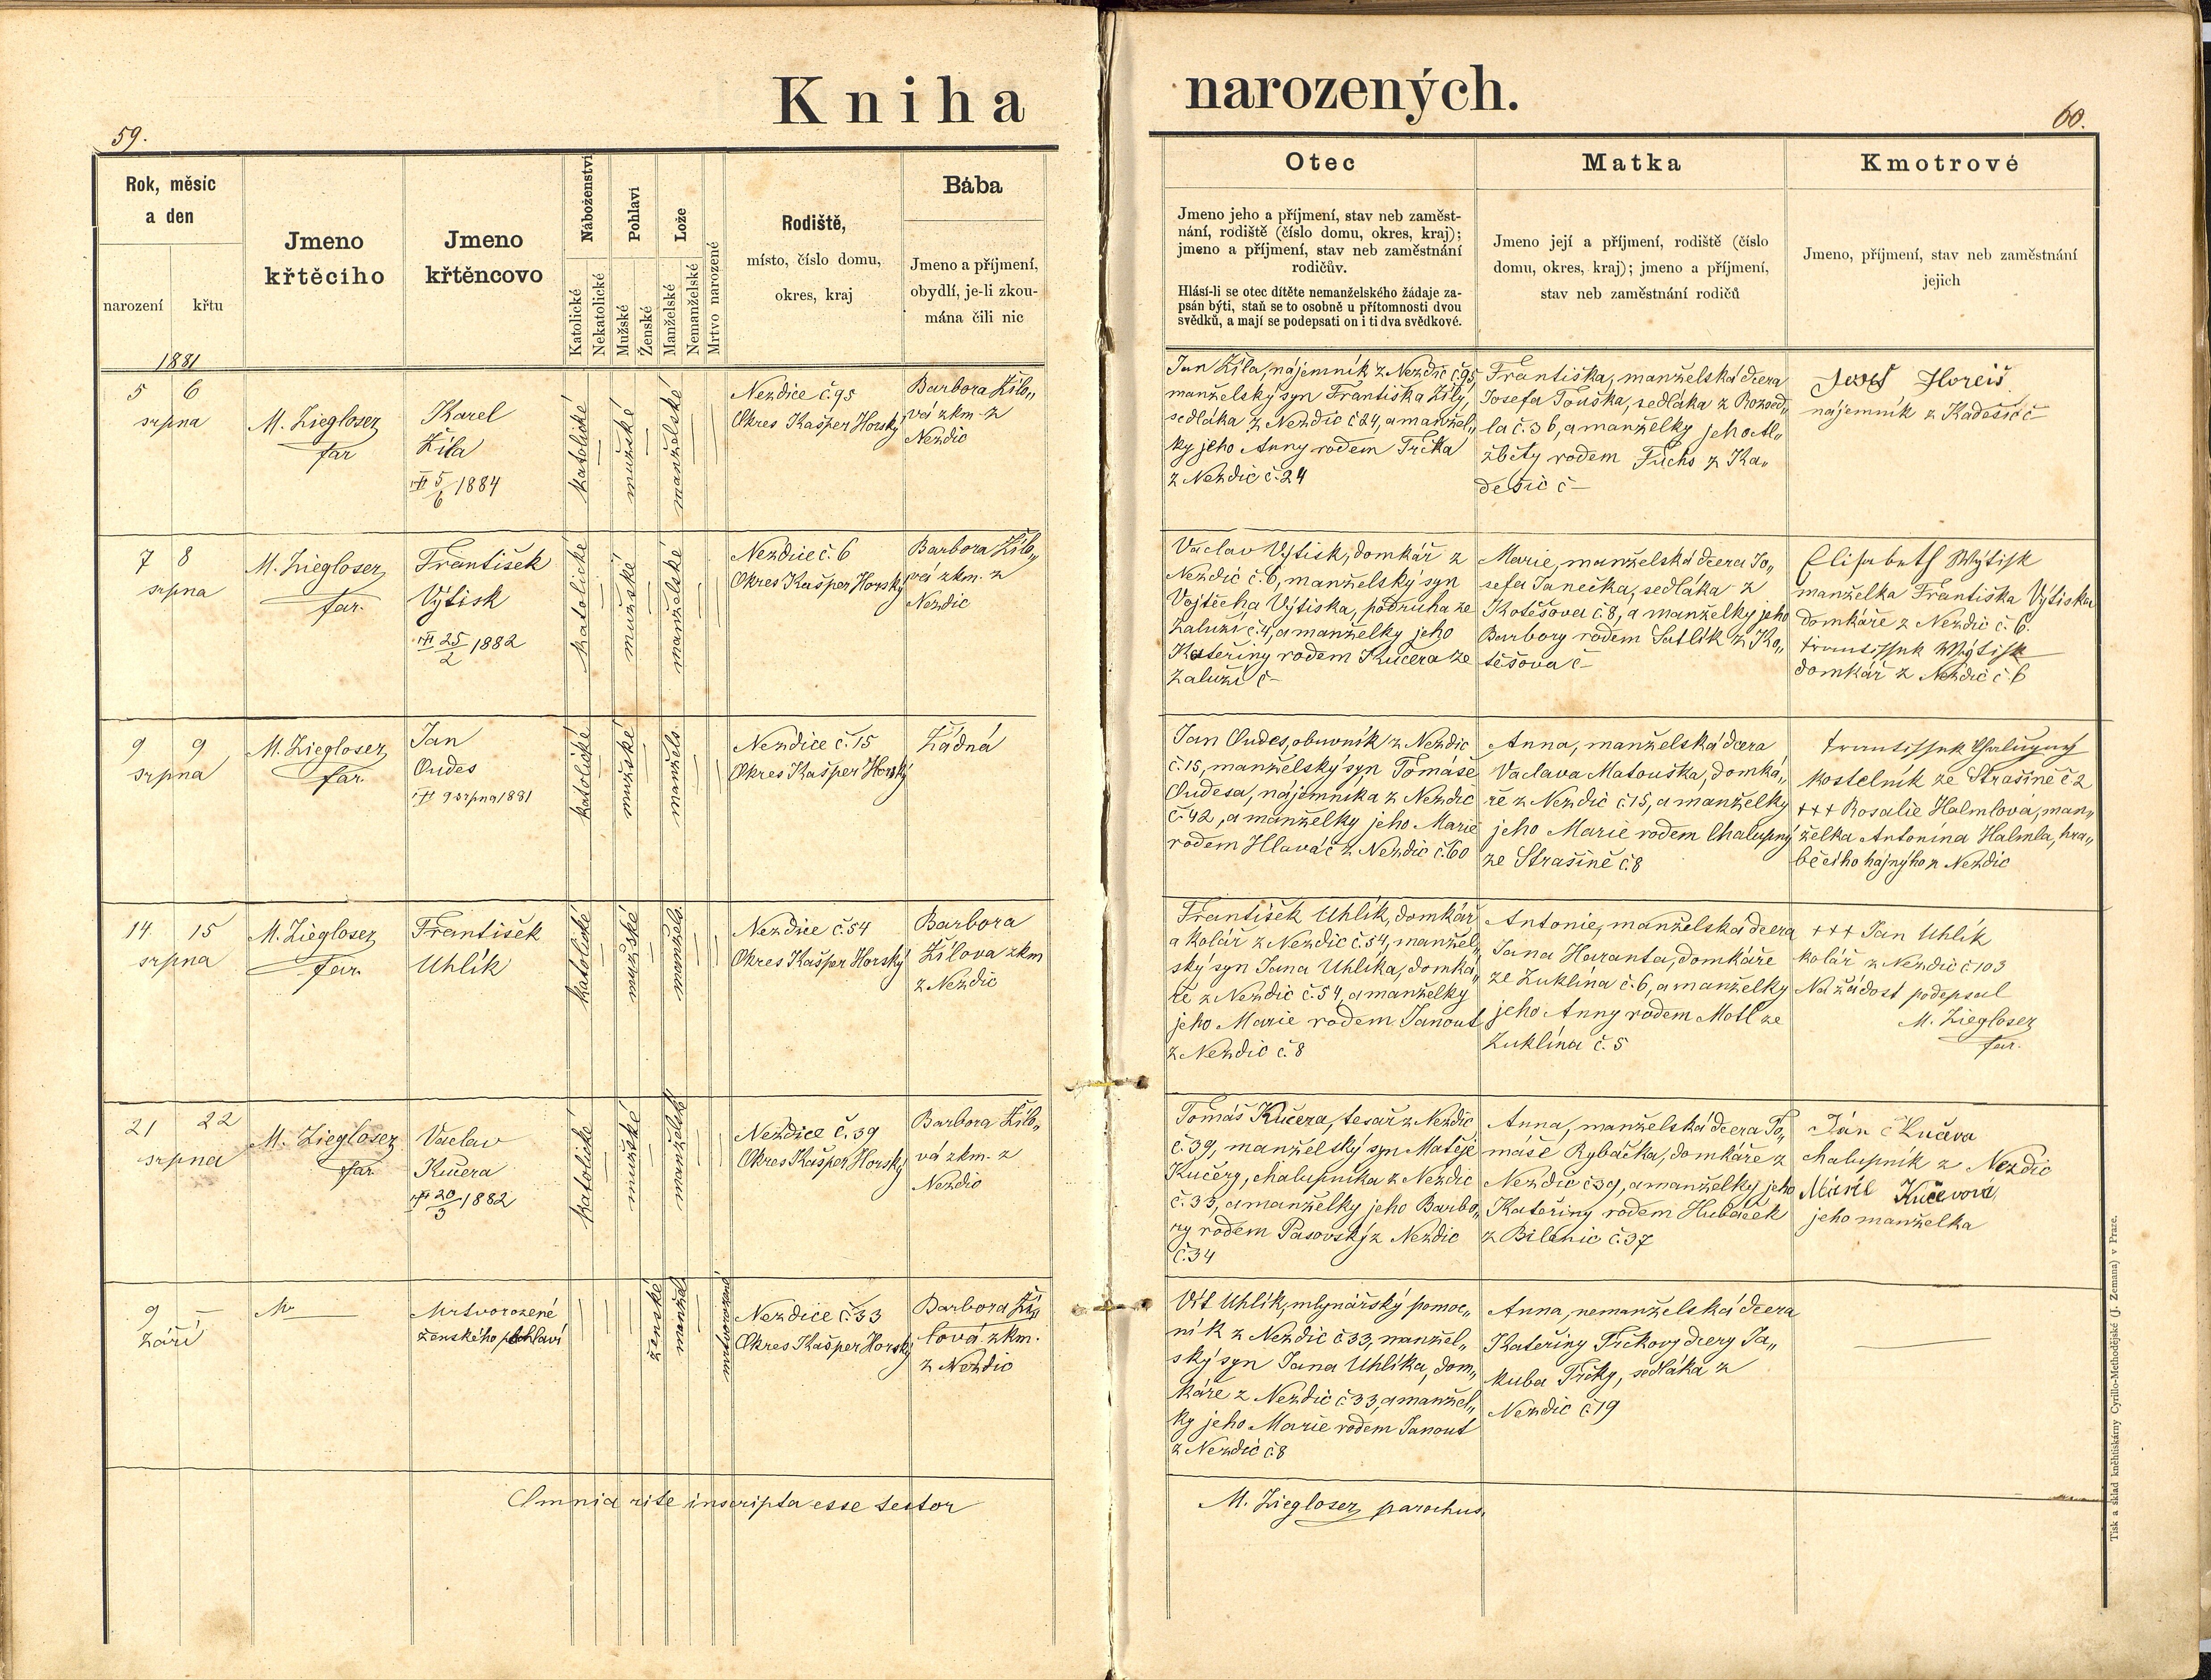 Kniha narozených.
59.
60.
Rok, měsíc
a den
narození
křtu
Jmeno
křtěcího
Jmeno
křtěncovo
Náboženství
Katolické
Nekatolické
Pohlaví
Mužské
Ženské
Lože
Manželské
Nemanželské
Mrtvo narozené
Rodiště,
místo, číslo domu,
okres, kraj
Bába
Jmeno a příjmení,
obydlí, je-li zkou-
mána čili nic
Otec
Jmeno jeho a příjmení, stav neb zaměst-
nání, rodiště (číslo domu, okres, kraj);
jmeno a příjmení, stav neb zaměstnání
rodičův.
Hlásí-li se otec dítěte nemanželského žádaje za-
psán býti, staň se to osobně u přítomnosti dvou
svědků, a mají se podepsati on i ti dva svědkové.
Matka
Jmeno její a příjmení, rodiště (číslo
domu, okres, kraj); jmeno a příjmení,
stav neb zaměstnání rodičů
Kmotrové
Jmeno, příjmení, stav neb zaměstnání
jejich
1881
5 6
srpna
M. Ziegloser
far
Karel
Žila
5/6 1884
katolické
mužské
manželské
Nezdice č. 95
Okres Kašper Horský
Barbora Žilo„
vá zkm. z
Nezdic
Jan Žila, nájemník z Nezdic č 95,
manželský syn Františka Žily,
sedláka z Nezdic č 24, a manžel„
ky jeho Anny rodem Trčka
z Nezdic č. 24
Františka, manželská dcera
Josefa Touška, sedláka z Rozsed„
la č. 36, a manželky jeho Al„
žběty rodem Fuchs z Ka„
dešic č –
Josef Horeiš
nájemník z Kadešic č –
7 8
srpna
M. Ziegloser
far.
František
Výtisk
25/2 1882
katolické
mužské
manželské
Nezdice č. 6
Okres Kašper Horský
Barbora Žilo„
vá zkm. z
Nezdic
Vaclav Výtisk, domkář z
Nezdic č. 6, manželský syn
Vojtěcha Výtiska, podruha ze
Zaluží č. 4, a manželky jeho
Kateřiny rodem Kučera ze
Zaluží č –
Marie, manželská dcera Jo„
sefa Janečka, sedláka z
Kotěšova č. 8, a manželky jeho
Barbory rodem Satlík z Ko„
těšova č –
Elisabeth Wýtisk
manželka Františka Výtiska
domkáře z Nezdic č. 6.
Frantisstek Wýtisk
domkář z Nezdic č. 6
9 9
srpna
M. Ziegloser
far.
Jan
Oudes
9 srpna 1881
katolické
mužské
manžels.
Nezdice č. 15
Okres Kašper Horský
Žádná
Jan Oudes, obuvník z Nezdic
č. 15, manželský syn Tomáše
Oudesa, nájemníka z Nezdic
č. 42, a manželky jeho Marie
rodem Hlaváč z Nezdic č. 60
Anna, manželská dcera
Vaclava Matouška, domká„
ře z Nezdic č 15, a manželky
jeho Marie rodem Chalupny
ze Strašině č. 8
kostelník ze Strašině č 2
+++ Rosalie Halmlová, man„
želka Antonína Halmla, hra„
běcího hajného z Nezdic
14. 15
srpna
M. Ziegloser
far.
František
Uhlík
katolické
mužské
manžels.
Nezdice č. 54
Okres Kašper Horský
Barbora
Žilova zkm
z Nezdic
František Uhlík, domkář
a kolář z Nezdic č. 54, manžel„
ský syn Jana Uhlíka, domká„
ře z Nezdic č. 54, a manželky
jeho Marie rodem Janout
z Nezdic č. 8
Antonie, manželská dcera
Jana Haranta, domkáře
ze Zuklína č. 6, a manželky
jeho Anny rodem Motl ze
Zuklína č. 5
+++ Jan Uhlík
kolář z Nezdic č 103
Na žádost podepsal
M. Ziegloser
far.
21 22
srpna
M. Ziegloser
far
Vaclav
Kučera
20/3 1882
katolické
mužské
manželské
Nezdice č. 39
Okres Kašper Horský
Barbora Žilo„
vá zkm. z
Nezdic
Tomáš Kučera, tesař z Nezdic
č. 39, manželský syn Matěje
Kučery, chalupníka z Nezdic
č. 33, a manželky jeho Barbo„
ry rodem Pasovský z Nezdic
č. 34
Anna, manželská dcera To„
máše Rybáčka, domkáře z
Nezdic č 39, a manželky jeho
Kateřiny rodem Hubáček
z Bilenic č. 37
Ján Kučera
chalupník z Nezdic
Marie Kučerová
jeho manželka
9 –
září
Mrtvorozené
ženského pohlaví
ženské
manžel
mrtvorozené
Nezdice č. 33
Okres Kašper Horský
Barbora Ži„
lová zkm.
z Nezdic
Vít Uhlík, mlynářský pomoc„
ník z Nezdic č 33, manžel„
ský syn Jana Uhlíka, dom„
káře z Nezdic č 33, a manžel„
ky jeho Marie rodem Janout
z Nezdic č. 8
Anna, nemanželská dcera
Kateřiny Trčkovy dcery Ja„
kuba Trčky, sedláka z
Nezdic č 19
Omnia rite inscripta esse testor
M. Ziegloser parochus.
Tisk a sklad kněhtiskárny Cyrillo-Methodějské (J. Zemana) v Praze.